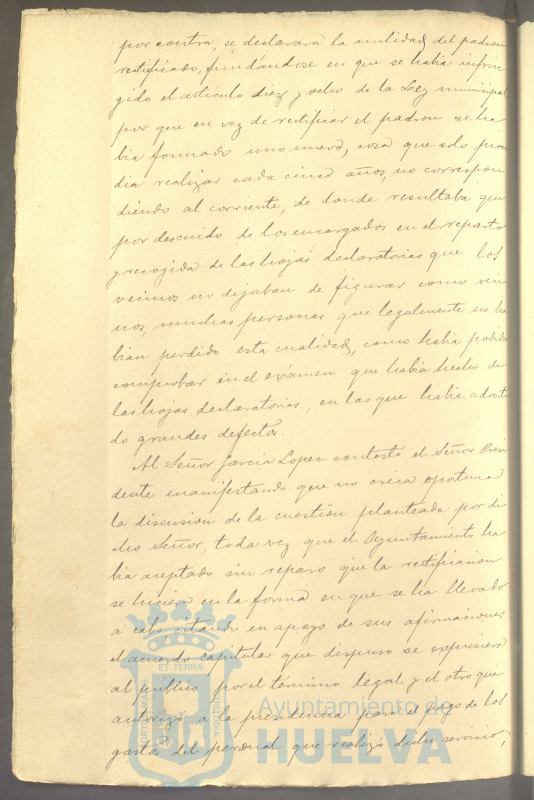 por contra, se declarara la nulidad del padron
rectificado, fundándose en que se habia infrin
gido el artículo diez y ocho de la Ley municipal
por que en vez de rectificar el padron se ha
bia formado uno nuevo, cosa que solo pro
dia realizar cada cinco años, no correspon
diendo al corriente, de donde resultaba que
por descuido de los encargados en el reparto
y recogida de las hojas declaratorias que los
vecinos no dejaban de figurar como veci
nos, muchas personas que legalmente no ha
bian perdido esta cualidad, como habia podido
comprobar en el exámen que habia hecho de
las hojas declaratorias, en las que habia adverti
do grandes defectos.
Al Señor García Lopez contestó el Señor Presi
dente manifestando que no creia oportuna
la discusion de la cuestion planteada por di
cho Señor, toda vez que el Ayuntamiento ha
bia aceptado sin reparo que la rectificacion
se hiciera en la forma en que se ha llevado
á cabo citando en apoyo de sus afirmaciones
el acuerdo capitular que dispuso se expusiera
al público por el término legal y el otro que
autorizó á la presidencia para el pago de los
gastos del personal que realizó dicho servicio;
ET TERRÆ
PORTUS MARIS
CUSTODIA
Ayuntamiento de
HUELVA